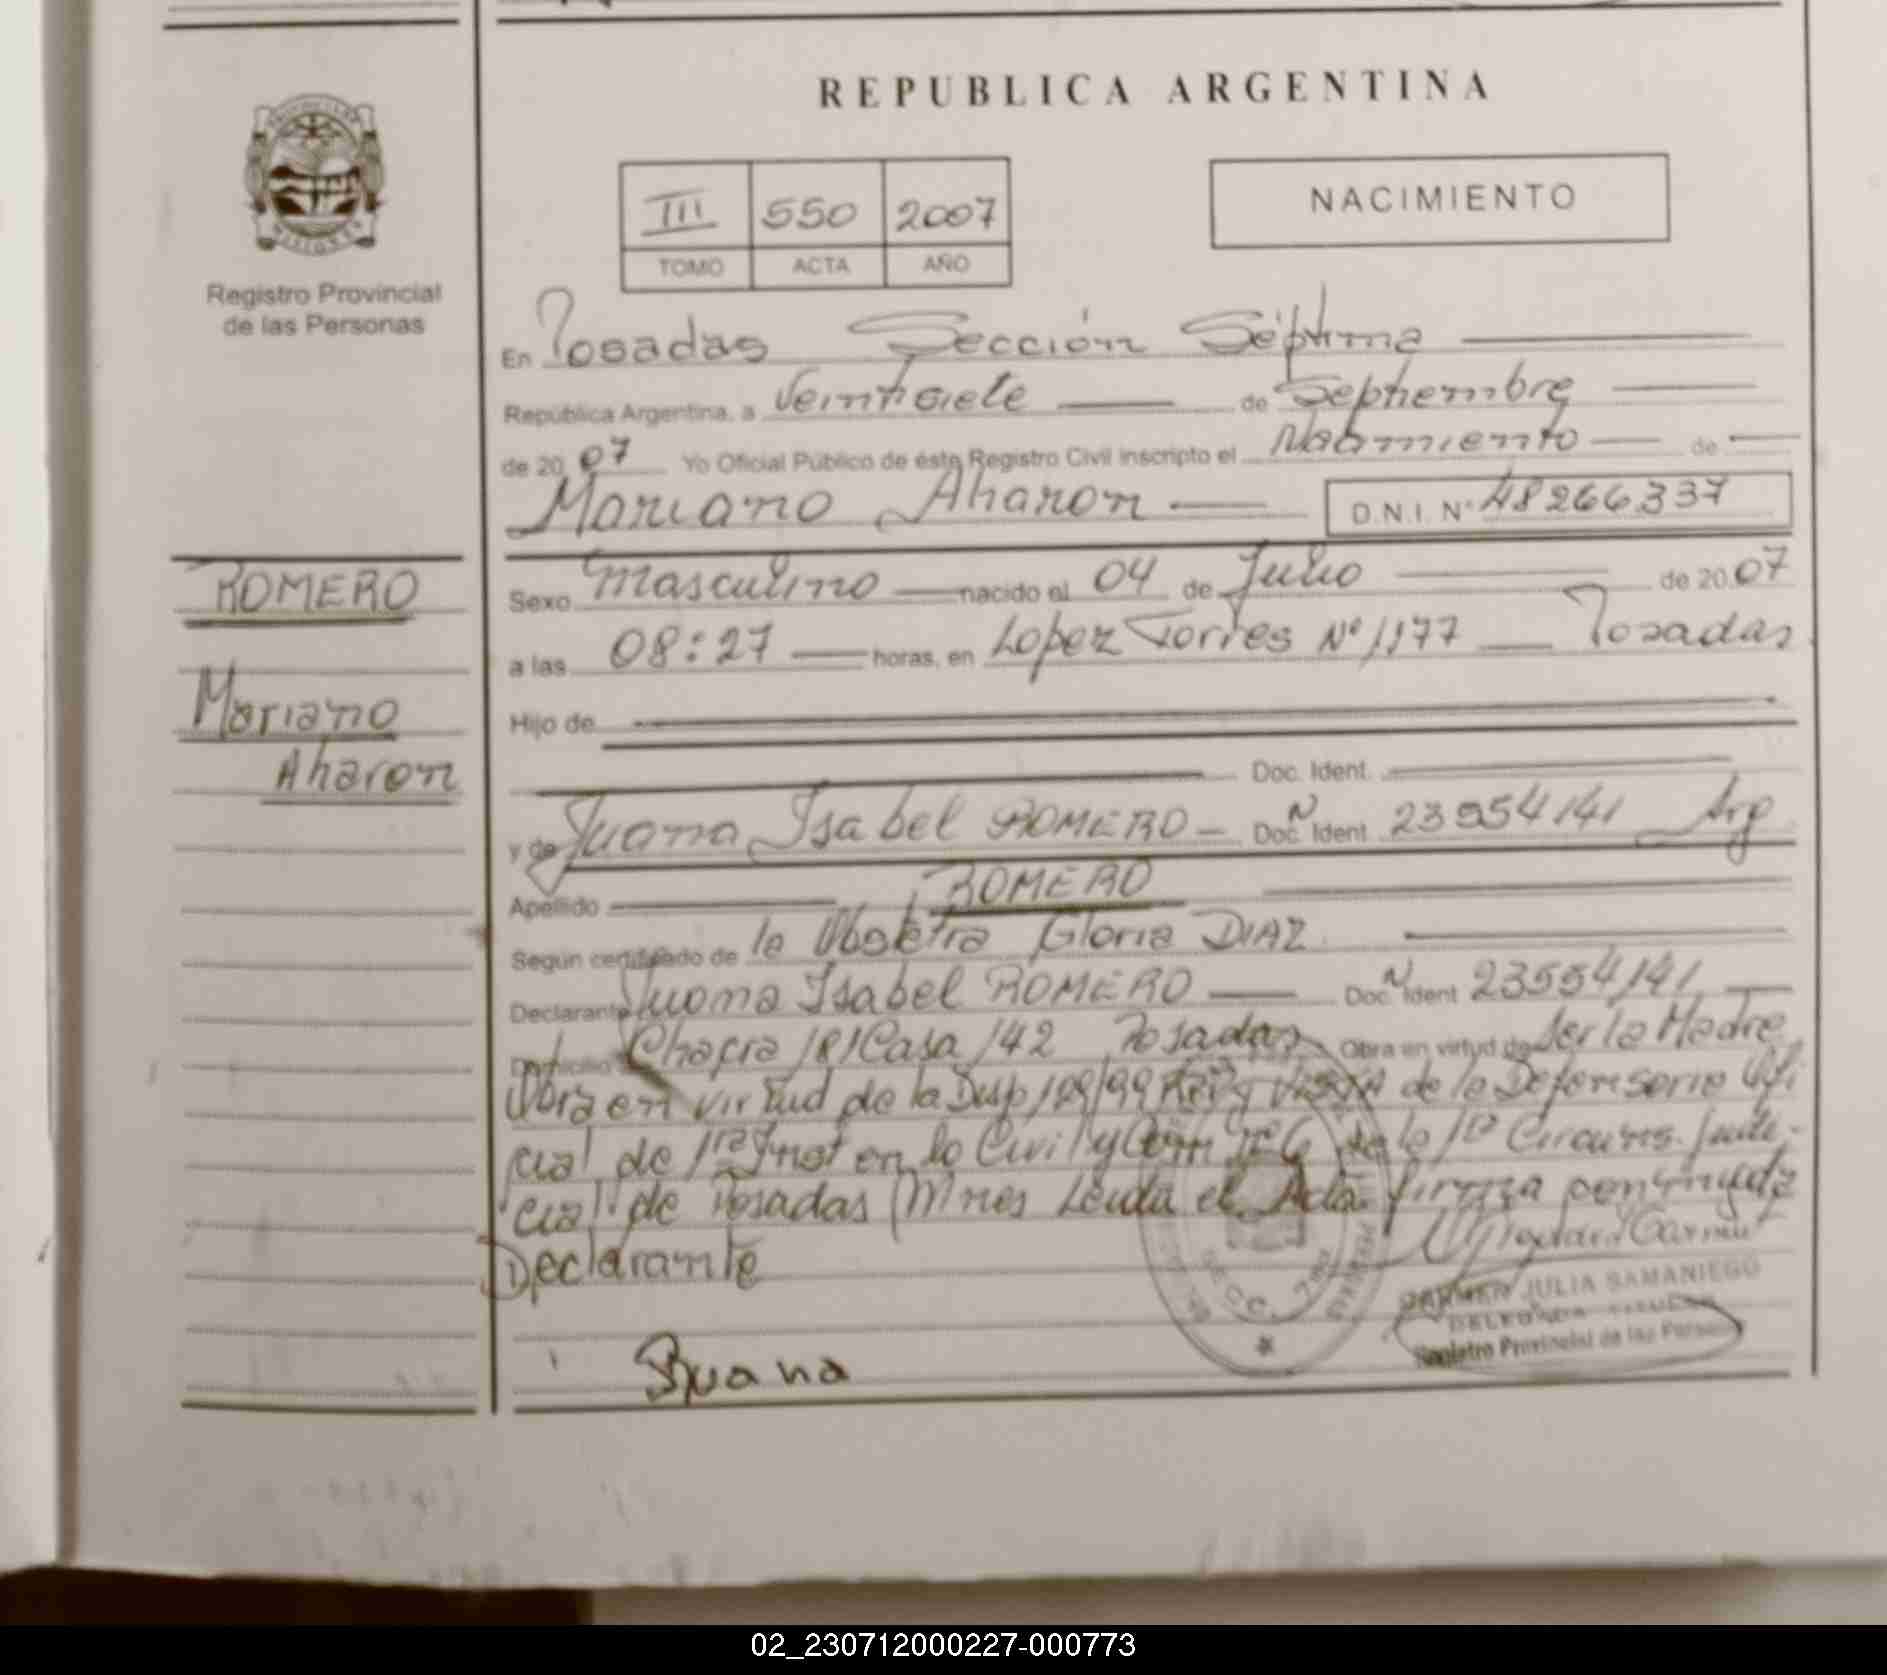 REPUBLICA ARGENTINA
NACIMIENTO
III 550 2007
TOMO ACTA AÑO
Registro Provincial
de las Personas
En Posadas Sección Séptima
República Argentina, a Veintisiete de Septiembre
de 20 07 Yo Oficial Público de éste Registro Civil inscripto el Nacimiento de
Mariano Aharon D.N.I. Nº 48266337
ROMERO
Mariano
Aharon
Sexo Masculino nacido el 04 de Julio de 20 07
a las 08:27 horas, en Lopez Torres Nº 1177 Posadas
Hijo de
Doc. Ident.
y de Juana Isabel ROMERO Doc. N Ident 23554141 Arg
Apellido ROMERO
Según certificado de la Obstetra Gloria DIAZ
Declarante Juana Isabel ROMERO Doc. N Ident 23554141
Domicilio Chacra 181 Casa 142 Posadas Obra en virtud de Ser la Madre
Obra en virtud de la Disp 129/99 y de la Defensoria Ofi
cial de 1ra Inst en lo Civil y Com Nº 6 de la 1º Circuns. Judi-
cial de Posadas Mnes Leida el Acta firma conmigo la
Declarante
SECC. 7ma
CARMEN JULIA SAMANIEGO
DELEGADA TITULAR
Registro Provincial de las Personas
Juana
02_230712000227-000773